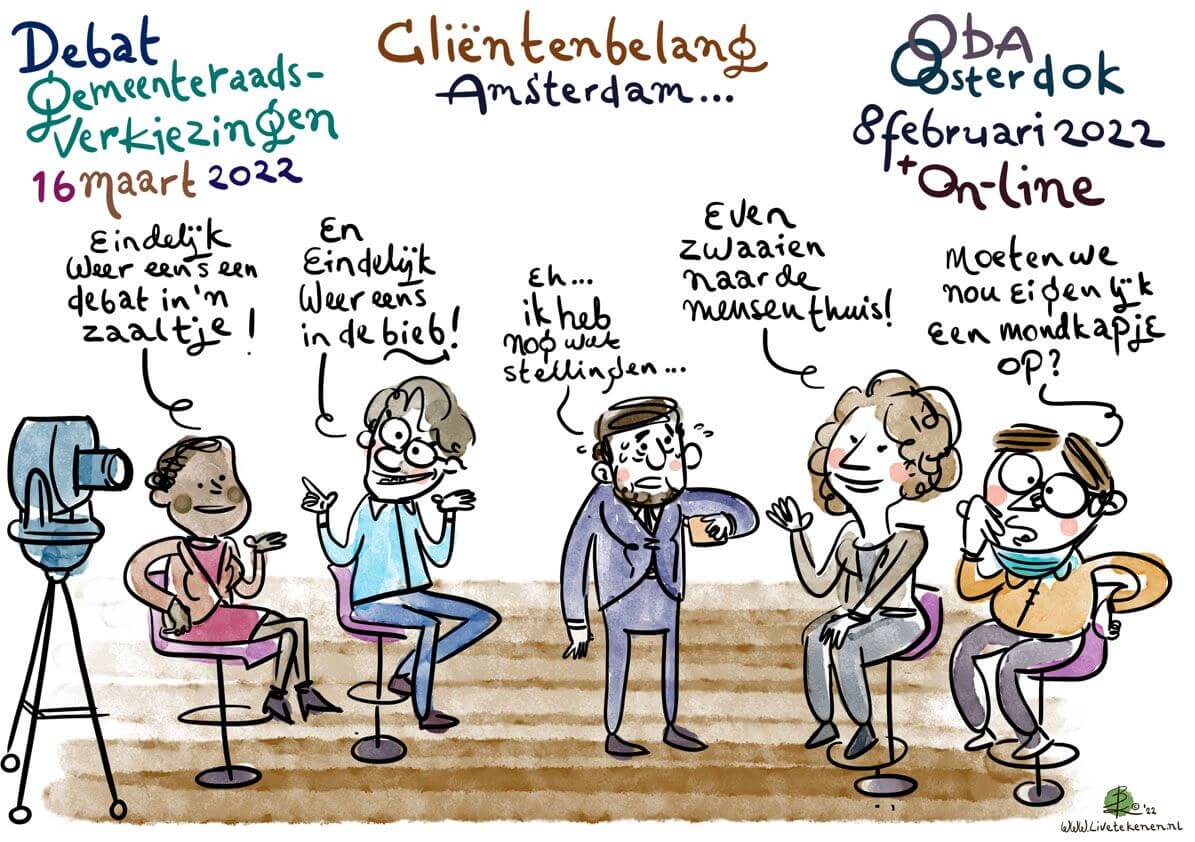 Debat
Gemeenteraads-
verkiezingen
16 maart 2022
Cliëntenbelang
Amsterdam...
OBA
Oosterdok
8 februari 2022
+ On-line
Eindelijk
weer eens een
debat in 'n
zaaltje!
En
Eindelijk
weer eens
in de bieb!
Eh...
ik heb
nog wat
stellingen...
Even
zwaaien
naar de
mensen thuis!
Moeten we
nou eigenlijk
een mondkapje
op?
© '22
www.Livetekenen.nl